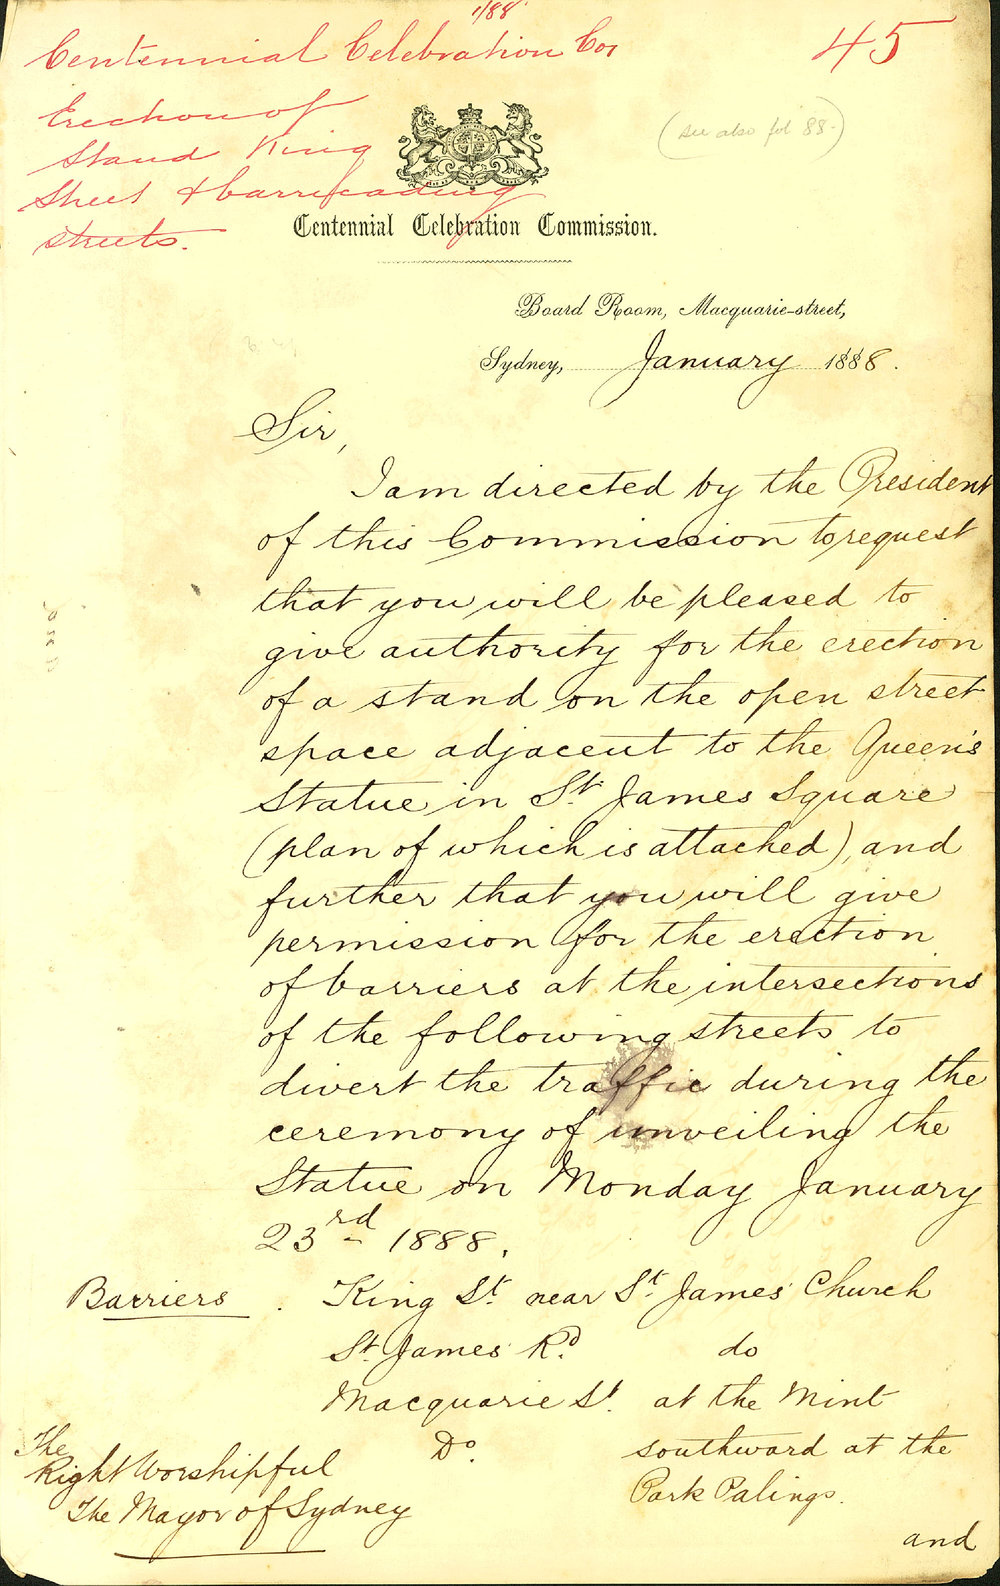 1/88
Centennial Celebration Con
45
Erection of
Stand King
Street & barricading
streets.
(see also fol 88.)
Centennial Celebration Commission.
Board Room, Macquarie-street,
Sydney, January 1888.
Sir,
I am directed by the President
of this Commission to request
that you will be pleased to
give authority for the erection
of a stand on the open street
space adjacent to the Queen's
Statue in St. James Square
(plan of which is attached), and
further that you will give
permission for the erection
of barriers at the intersections
of the following streets to
divert the traffic during the
ceremony of unveiling the
Statue on Monday January
23rd 1888.
Barriers. King St. near St. James' Church
St. James' Rd. do
Macquarie St. at the Mint
Do. southward at the
Park Palings.
The
Right Worshipful
The Mayor of Sydney
and